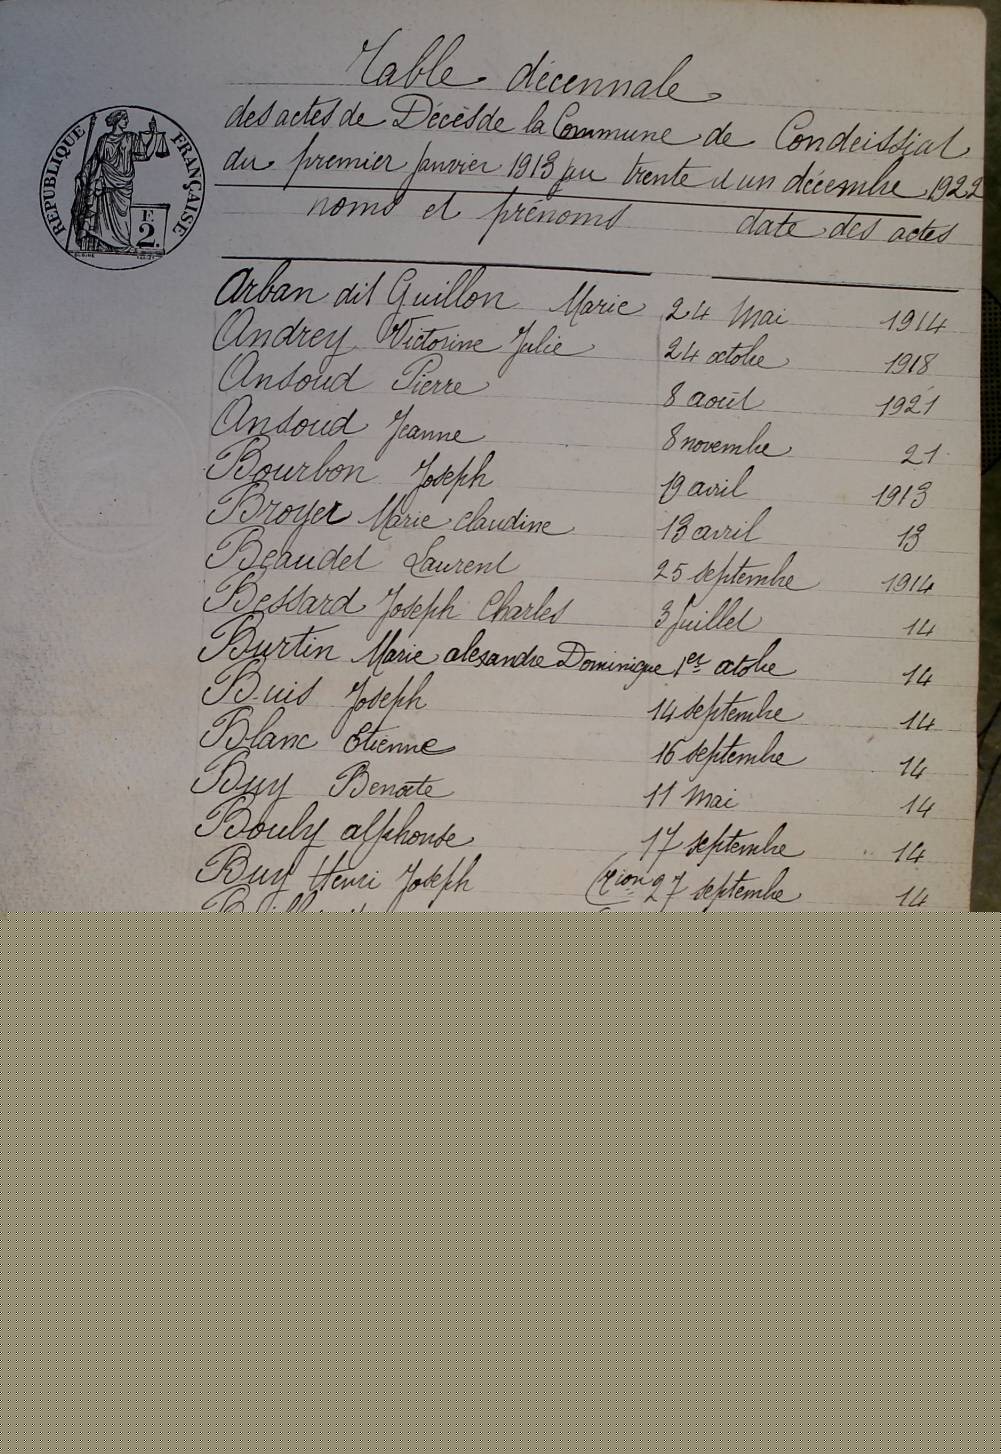 Table décennale
des actes de Décès de la Commune de Condeissiat
du premier Janvier 1913 au trente et un décembre 1922
RÉPUBLIQUE FRANÇAISE
E
2.
noms et prénoms date des actes
Arban dit Guillon Marie 24 Mai 1914
Andrey Victorine Julie 24 octobre 1918
Ansoud Pierre 8 août 1921
Ansoud Jeanne 8 novembre 21
Bourbon Joseph 19 avril 1913
Broyer Marie claudine 13 avril 13
Beaudet Laurent 25 septembre 1914
Bessard Joseph Charles 3 Juillet 14
Burtin Marie alexandre Dominique 1er octobre 14
Buis Joseph 14 septembre 14
Blanc Etienne 16 septembre 14
Buy Benoite 11 Mai 14
Bouly alphonse 17 septembre 14
Buy Henri Joseph 27 septembre 14